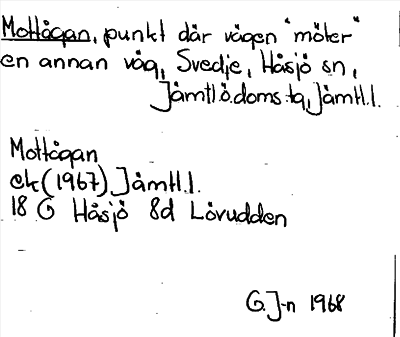 Mottågan, punkt där vägen "möter"
en annan väg, Svedje, Håsjö sn,
Jämtl.ö.doms.tg, Jämtl.l.
Mottågan
ek (1967) Jämtl.l.
18 G Håsjö 8d Lövudden
G.J-n 1968